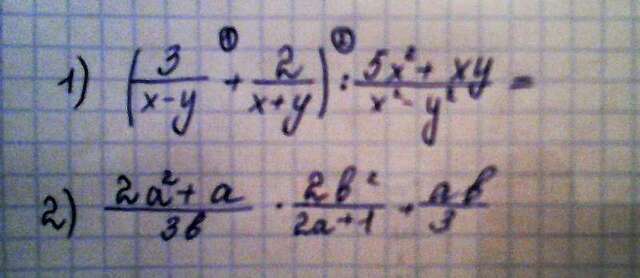 1) (3/(x-y) +① 2/(x+y)) :② (5x²+xy)/(x²-y²) =
2) (2a²+a)/3b · 2b²/(2a+1) + ab/3